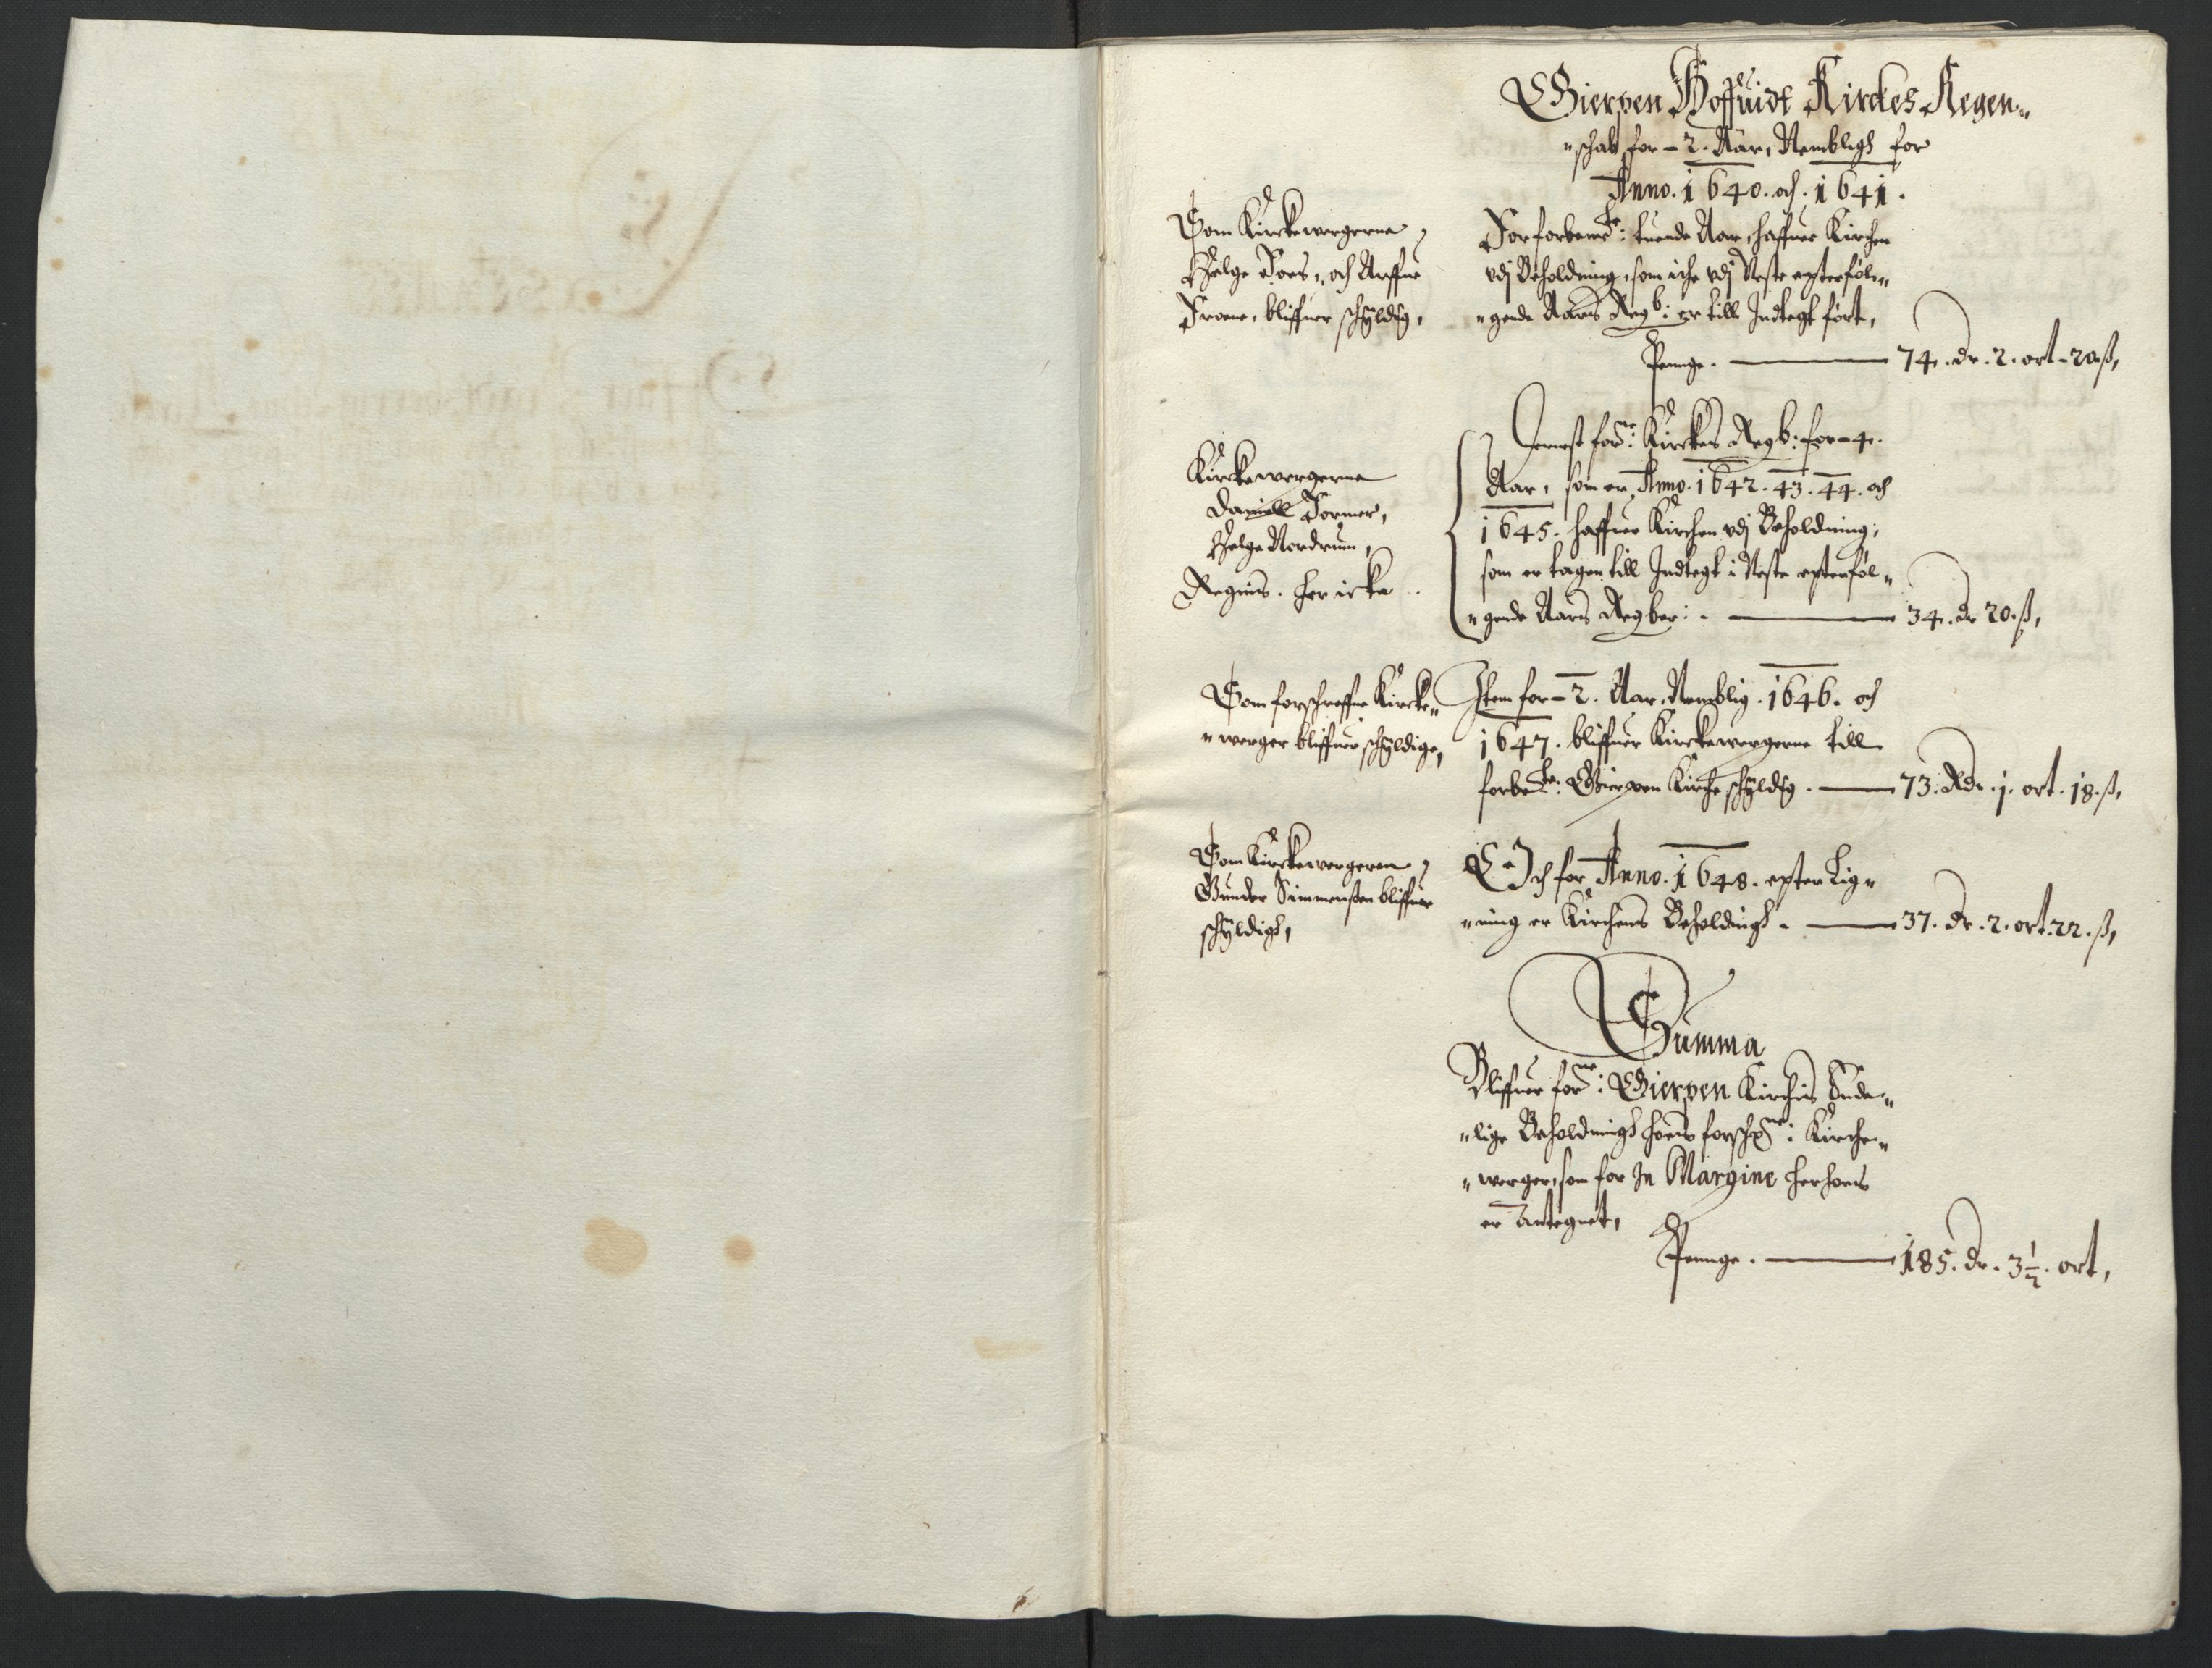 Gierpen Hoffuidt Kirckes Regen„
„schab for - 2. Aar, Nembligh for
Anno. 1640. och. 1641.
Som Kirckewergerne
Helge Foss, och Aaffue
Froene, bliffuer schyldig,
Forforbemte: tuende Aar, haffuer Kirchen
vdj Beholdning, som iche vdj Neste epterføl„
„gende Aars Regb: er till Indtegt ført,
Penge. — 74. dr. 2. ort - 20 ß,
Kirckewergerne
Daniell Former,
Helge Nordrum,
Regnis. her icke
Dernest forne: Kirckes Regb: for - 4.
Aar, som er Anno. 1642. 43. 44. och
1645. haffuer Kirchen vdj Beholdning,
som er tagen till Indtegt i Neste epterføl„
„gende Aars Regber: — 34. dr 20. ß,
Som forschreffne Kircke„
„werger bliffuer schyldige,
Item for - 2. Aar, Nemblig. 1646. och
1647. bliffuer Kirckewergerne till
forbete: Gierpen Kirche schyldig. — 73. Rdr. j. ort. 18. ß,
Som Kirckewergeren
Gunder Simmensen bliffuer
schyldigh,
Och for Anno. 1648. epter Lig„
„ning er Kirchens Beholdnigh. — 37. dr. 2. ort. 22. ß,
Summa
Bliffuer forne: Gierpen Kirchis Ende„
„lige Beholdningh hoes forschne: Kirche„
„werger, som for In Margine herhoes
er Antegnet,
Penge. — 185. dr. 3 1/2. ort,